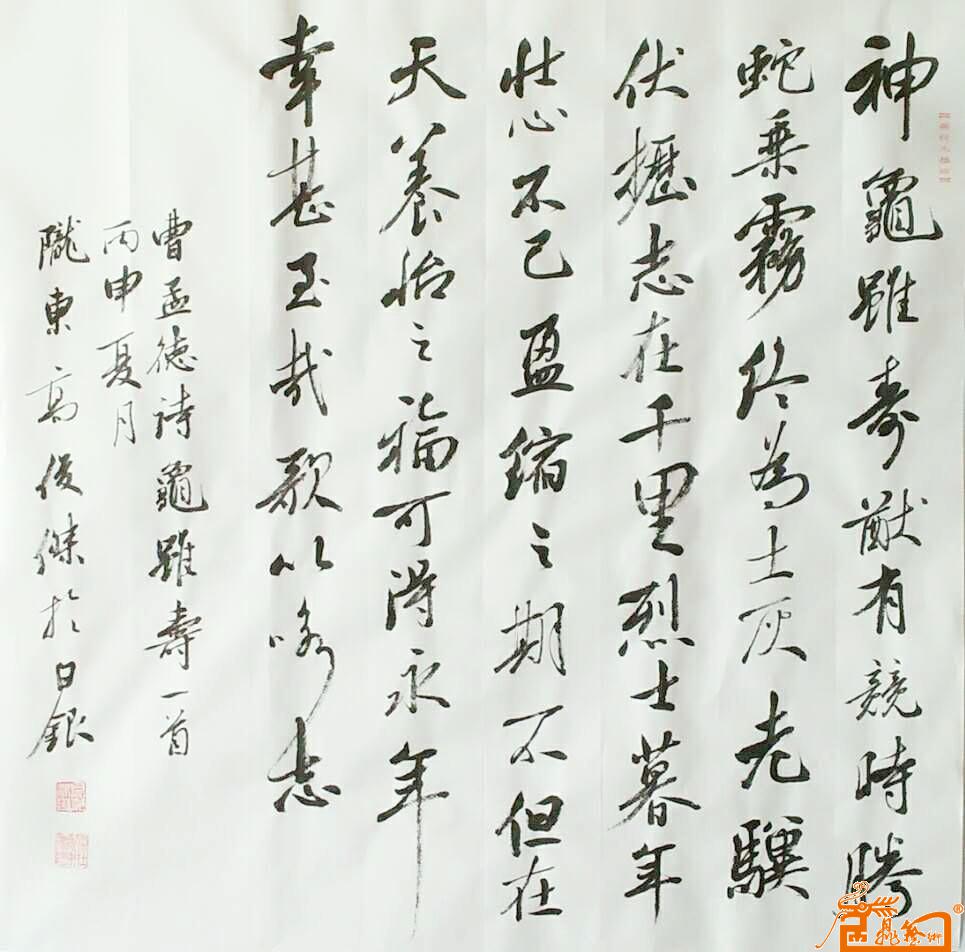 神龜雖壽猷有競時騰
蛇乘霧終為土灰老驥
伏櫪志在千里烈士暮年
壯心不已盈縮之期不但在
天養怡之福可得永年
幸甚至哉歌以咏志
曹孟德詩龜雖壽一首
丙申夏月
隴東高俊傑於白銀